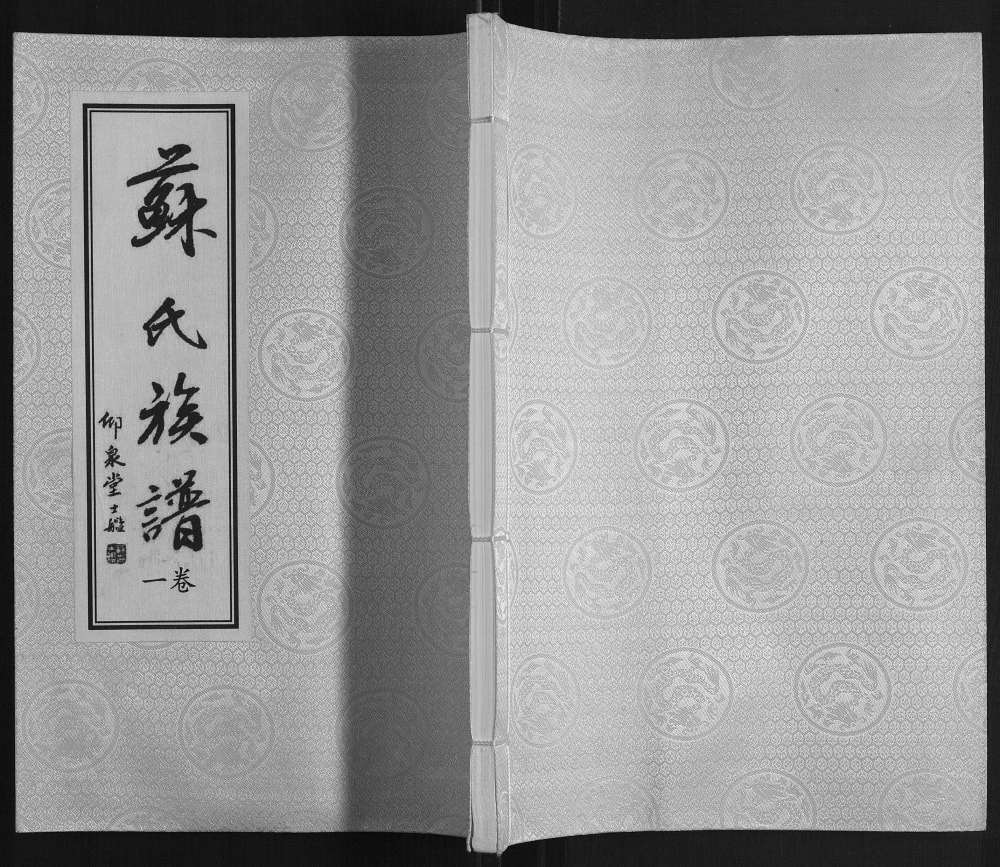 蘇氏族譜
卷一
仰泉堂士艦